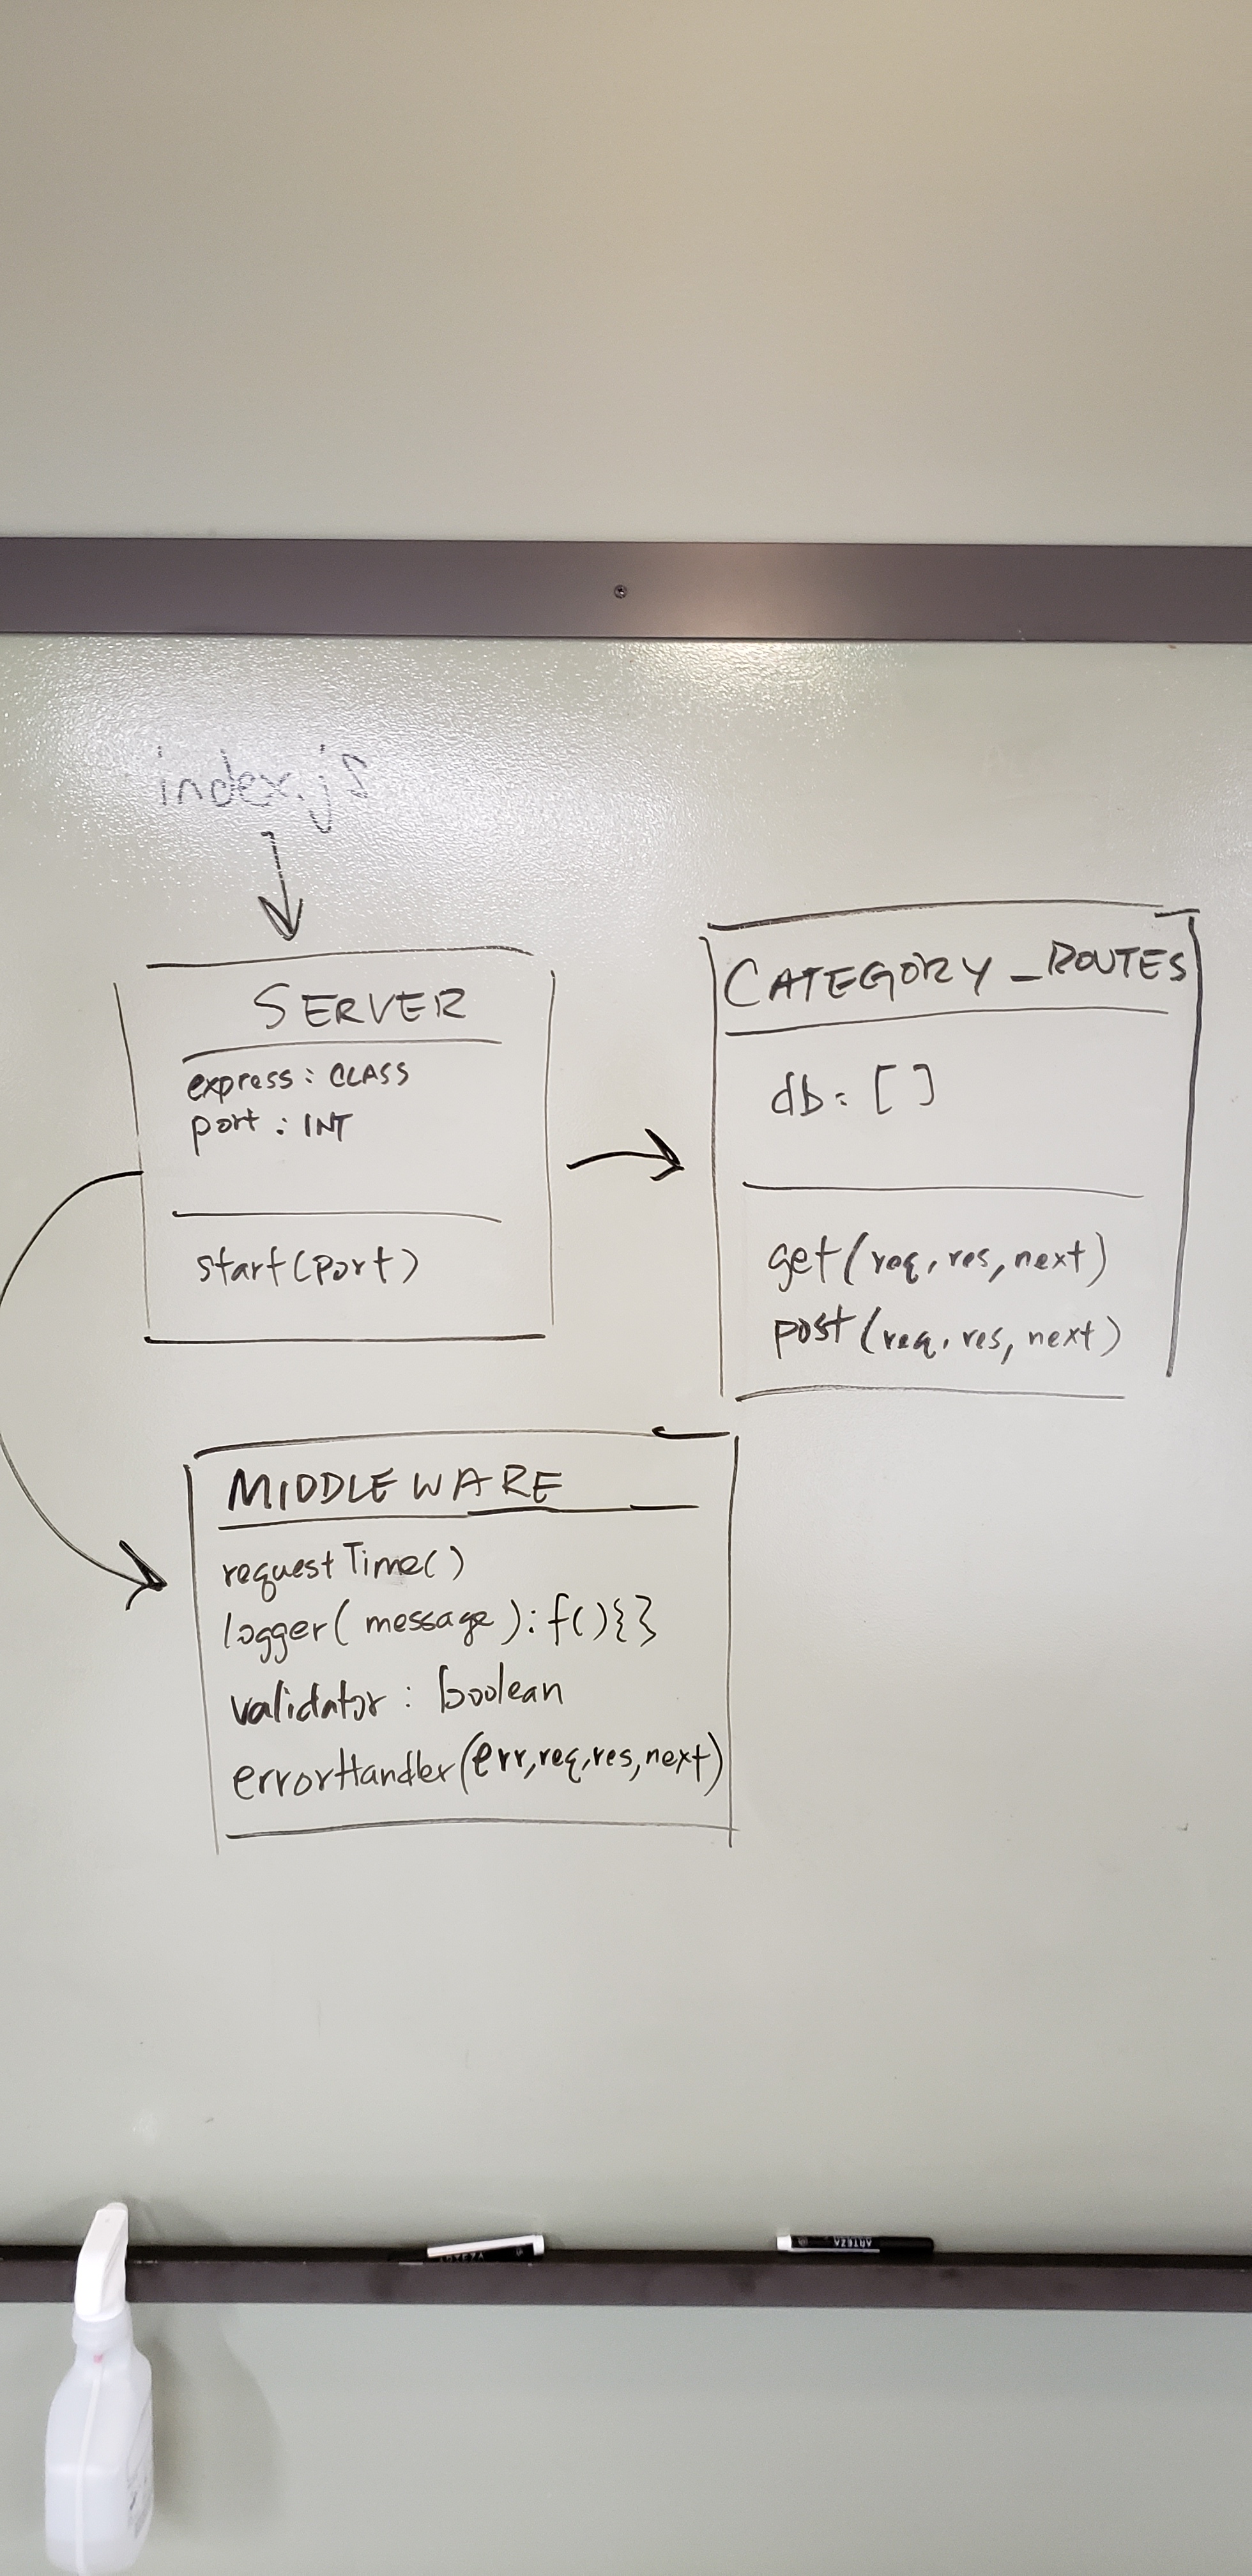 index.js
SERVER
express: CLASS
port: INT
start(port)
CATEGORY_ROUTES
db: []
get(req, res, next)
post(req, res, next)
MIDDLEWARE
requestTime()
logger(message): f(){}
validator: boolean
errorHandler(err,req,res,next)
ARTEZA
ARTEZA